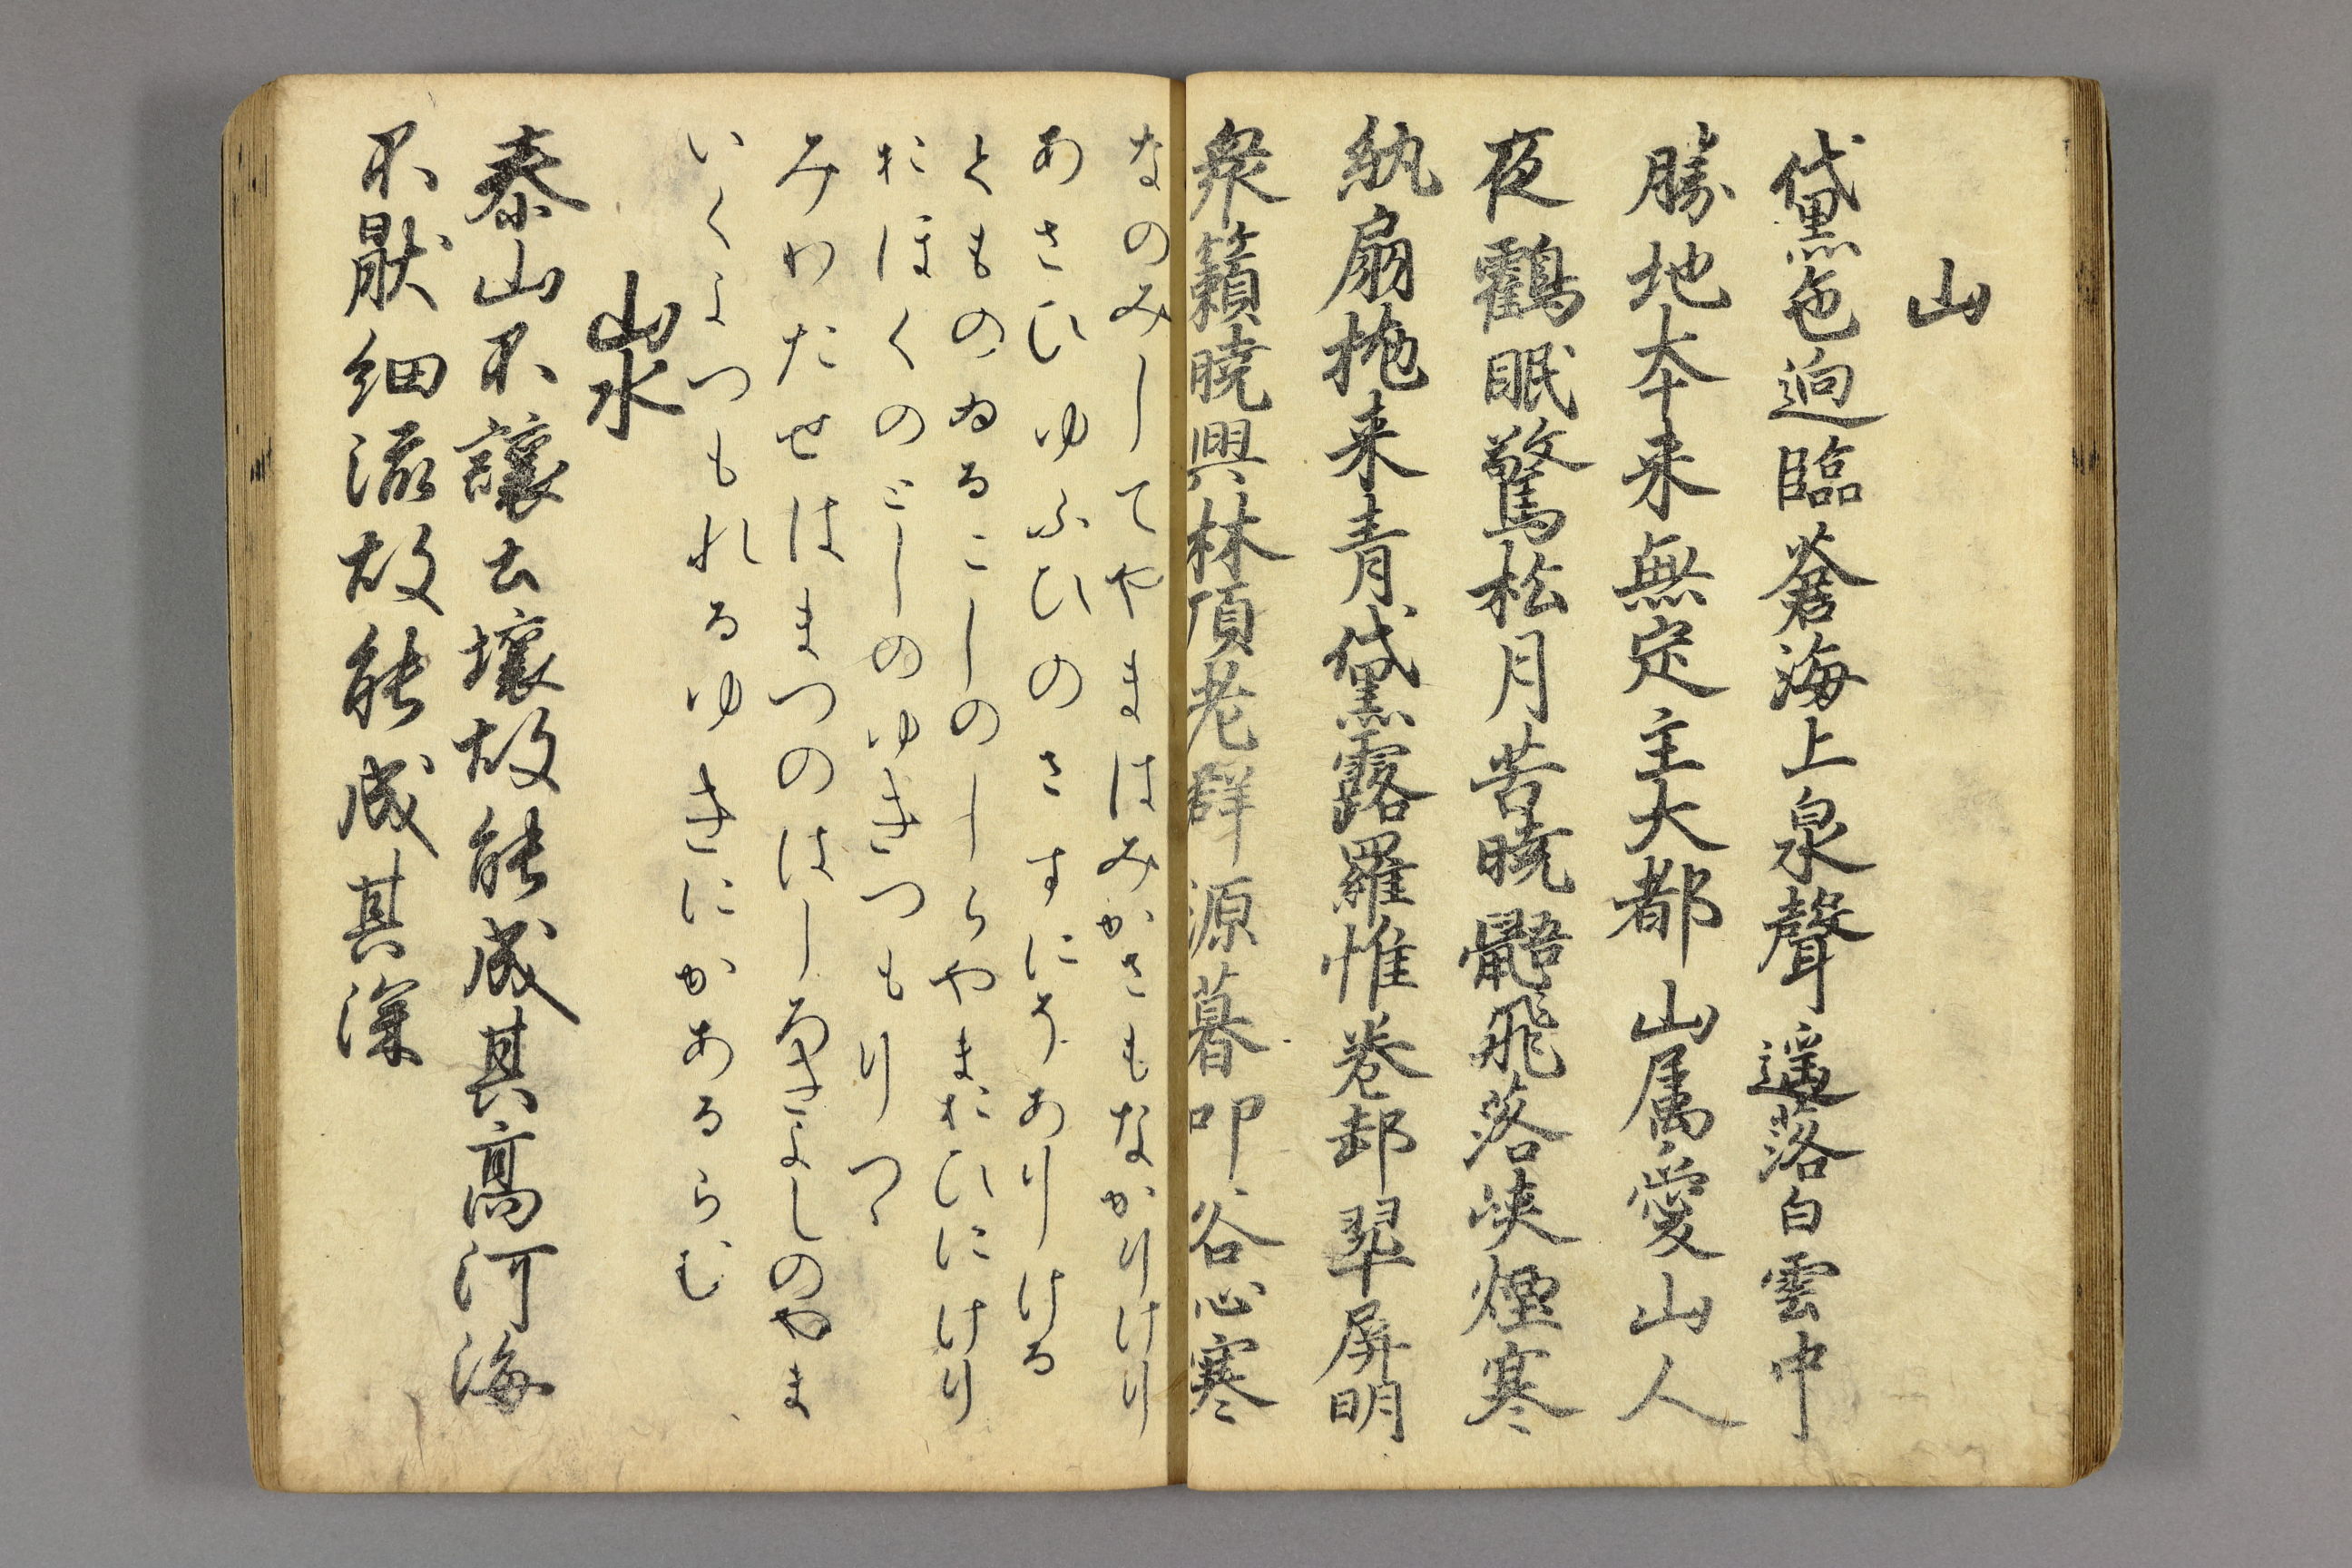 山
黛色逈臨蒼海上泉聲遥落白雲中
勝地本来無定主大都山属愛山人
夜鶴眠驚松月苦暁鼯飛落峡煙寒
紈扇抛来青黛露羅帷巻却翠屏明
衆籟暁興林頂老群源暮叩谷心寒
なのみしてやまはみかさもなかりけり
あさひゆふひのさすにそありける
くものゐるこしのしらやまおいにけり
おほくのとしのゆきつもりつゝ
みわたせはまつのはしろきよしのやま
いくよつもれるゆきにかあるらむ
山水
泰山不讓土壤故能成其高河海
不猒細流故能成其深